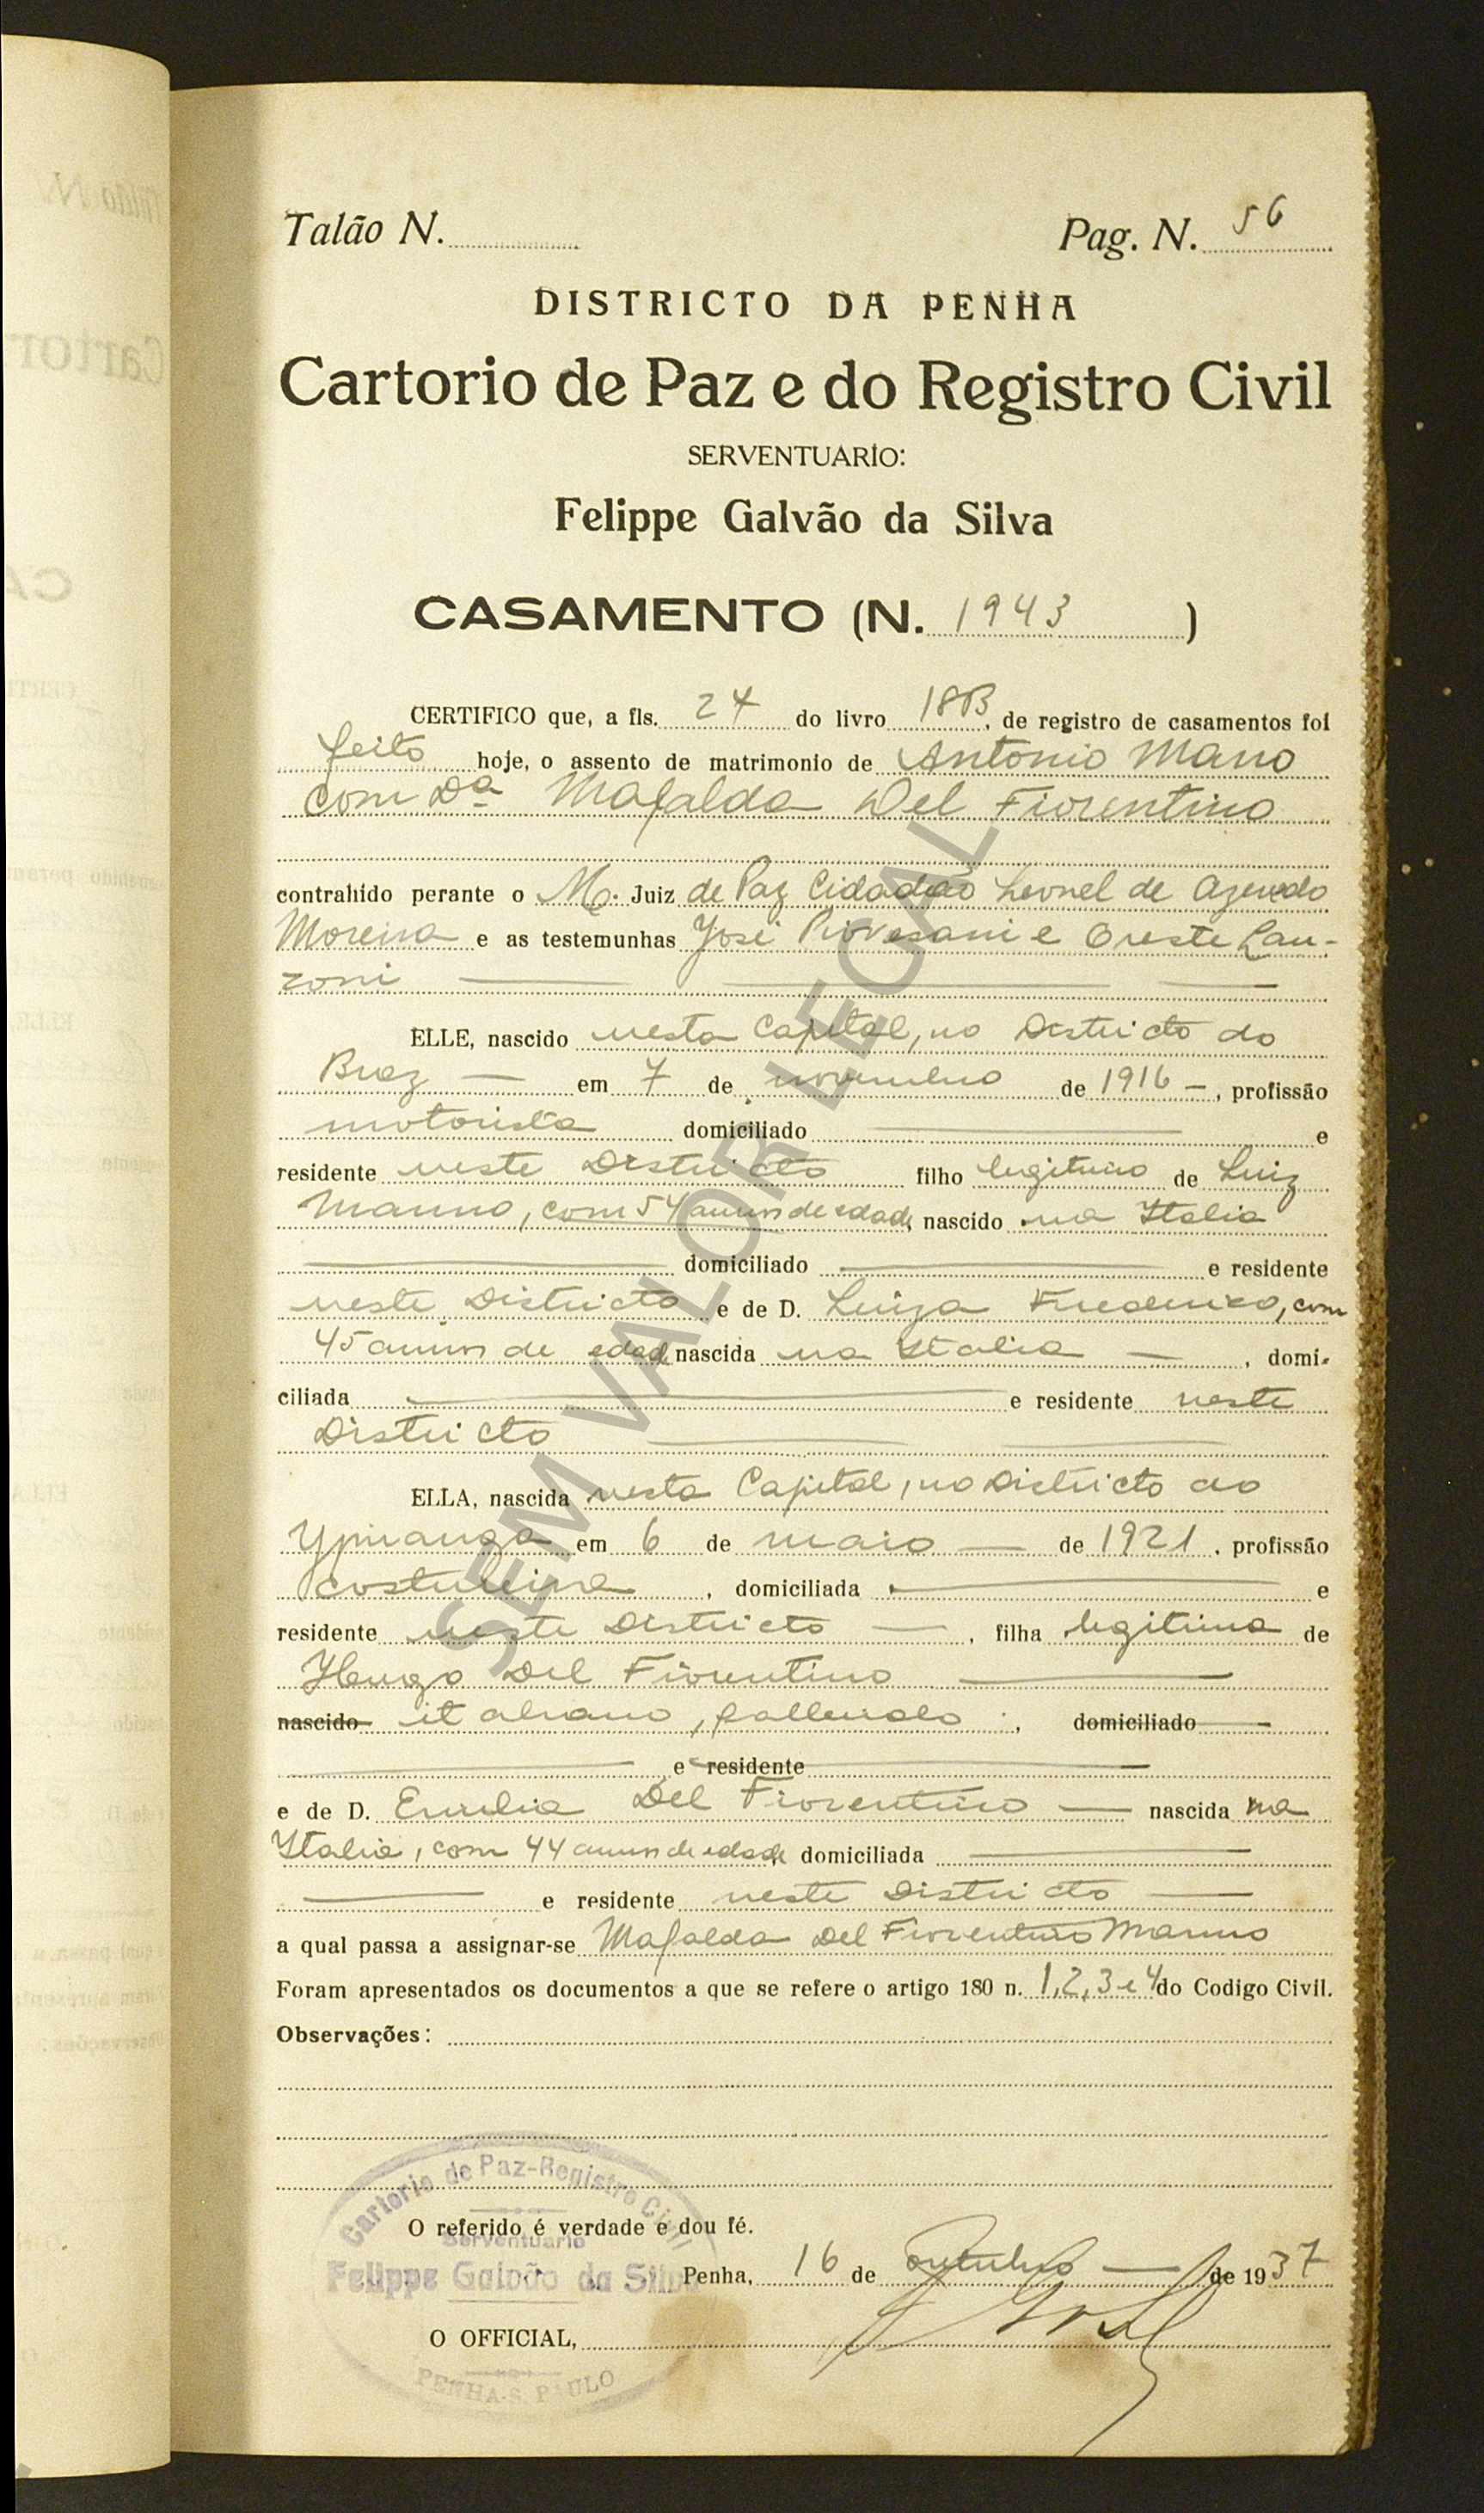 Talão N. Pag. N. 56
DISTRICTO DA PENHA
Cartorio de Paz e do Registro Civil
SERVENTUARIO:
Felippe Galvão da Silva
CASAMENTO (N. 1943 )
CERTIFICO que, a fls. 24 do livro 18B, de registro de casamentos foi
feito hoje, o assento de matrimonio de Antonio Mano
com Da Mafalda Del Fiorentino
contrahido perante o Mo. Juiz de Paz Cidadão Leonel de Azevedo
Moreira e as testemunhas José Piovesani e Oreste Lan-
zoni
ELLE, nascido nesta Capital, no Districto do
Braz em 7 de novembro de 1916, profissão
motorista domiciliado e
residente neste Districto filho legitimo de Luiz
Manno, com 54 annos de edade, nascido na Italia
domiciliado e residente
neste Districto e de D. Luiza Frederico, com
45 annos de edade, nascida na Italia, domi-
ciliada e residente neste
Districto
ELLA, nascida nesta Capital, no Districto do
Ypiranga em 6 de maio de 1921, profissão
costureira, domiciliada e
residente neste Districto, filha legitima de
Hugo Del Fiorentino
nascido italiano, fallecido, domiciliado
e residente
e de D. Emilia Del Fiorentino nascida na
Italia, com 44 annos de edade domiciliada
e residente neste Districto
a qual passa a assignar-se Mafalda Del Fiorentino Manno
Foram apresentados os documentos a que se refere o artigo 180 n. 1, 2, 3 e 4 do Codigo Civil.
Observações:
Cartorio de Paz-Registro Civil
O referido é verdade e dou fé.
Serventuario
Felippe Galvão da Silva
Penha, 16 de outubro de 1937
O OFFICIAL,
PENHA-S. PAULO
SEM VALOR LEGAL